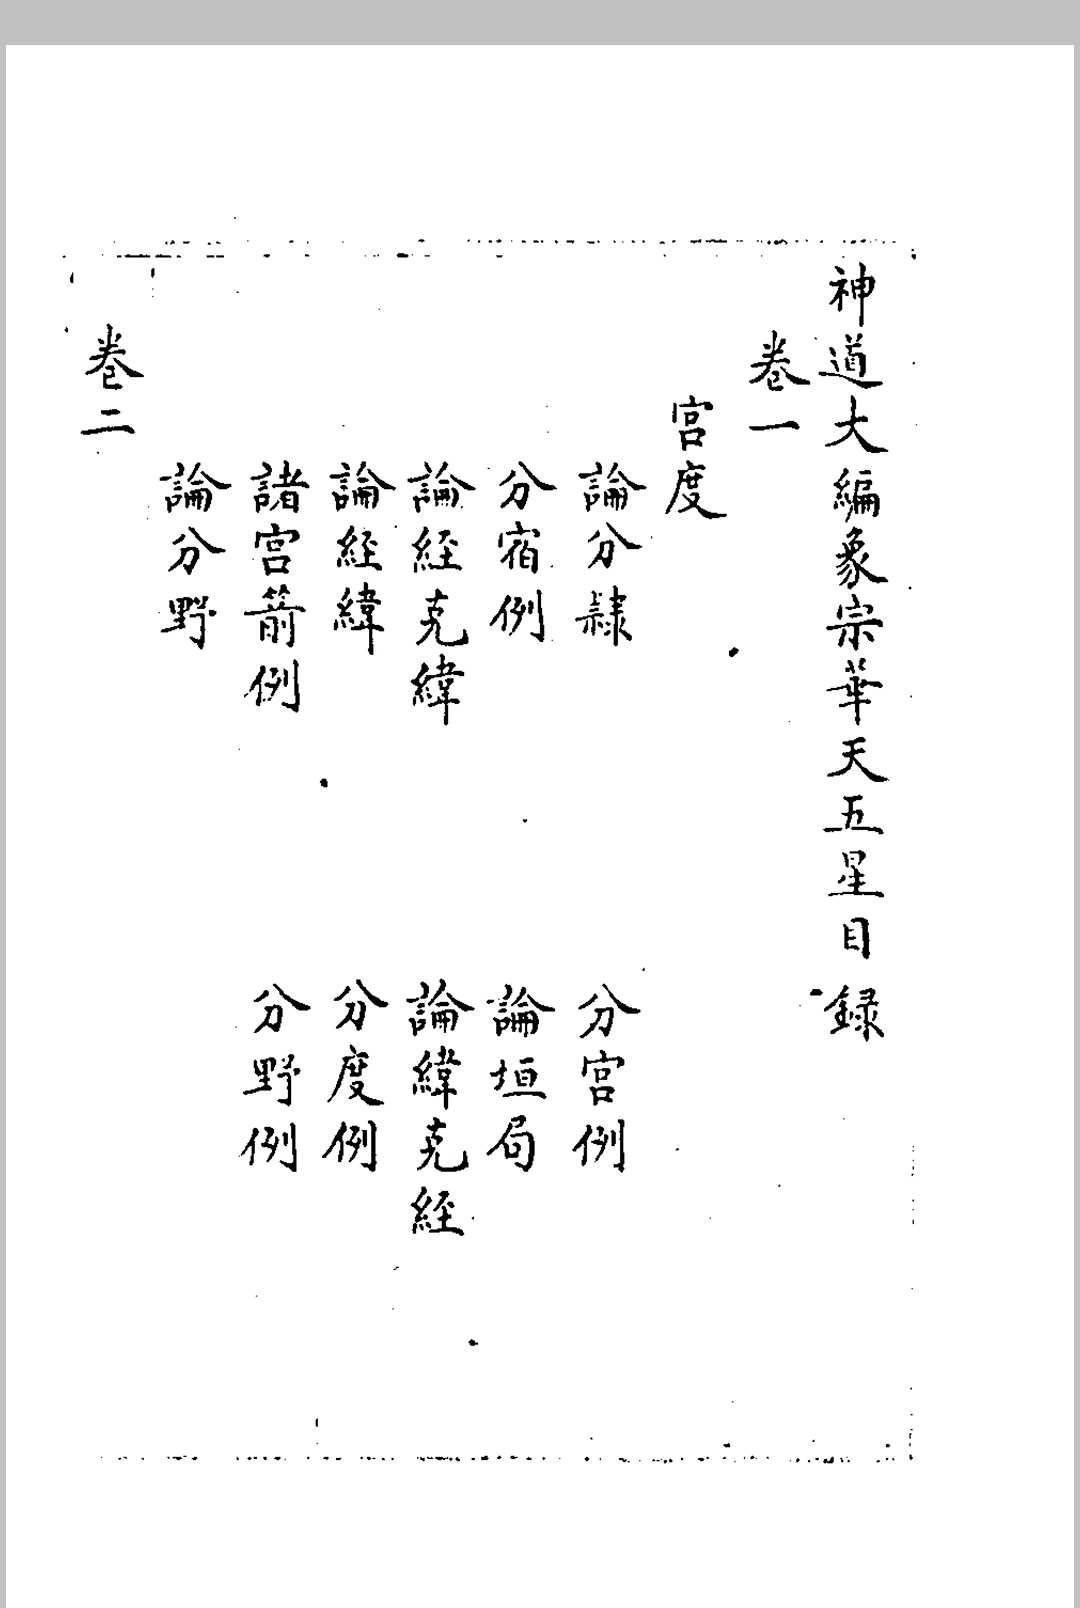 神道大編象宗華天五星目録
卷一
宮度
論分隸
分宮例
分宿例
論垣局
論經克緯
論緯克經
論經緯
分度例
諸宮箭例
分野例
論分野
卷二